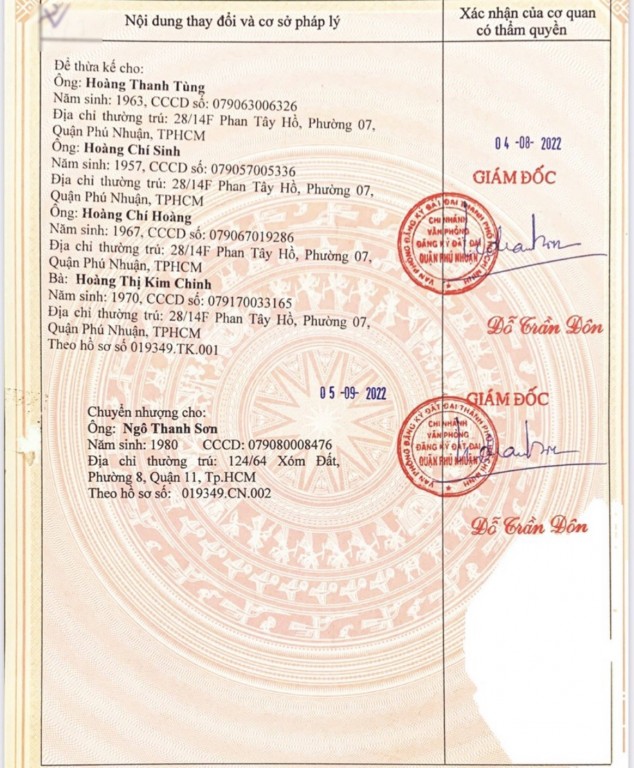 Nội dung thay đổi và cơ sở pháp lý
Xác nhận của cơ quan
có thẩm quyền
Để thừa kế cho:
Ông: Hoàng Thanh Tùng
Năm sinh: 1963, CCCD số: 079063006326
Địa chỉ thường trú: 28/14F Phan Tây Hồ, Phường 07,
Quận Phú Nhuận, TPHCM
Ông: Hoàng Chí Sinh
Năm sinh: 1957, CCCD số: 079057005336
Địa chỉ thường trú: 28/14F Phan Tây Hồ, Phường 07,
Quận Phú Nhuận, TPHCM
Ông: Hoàng Chí Hoàng
Năm sinh: 1967, CCCD số: 079067019286
Địa chỉ thường trú: 28/14F Phan Tây Hồ, Phường 07,
Quận Phú Nhuận, TPHCM
Bà: Hoàng Thị Kim Chinh
Năm sinh: 1970, CCCD số: 079170033165
Địa chỉ thường trú: 28/14F Phan Tây Hồ, Phường 07,
Quận Phú Nhuận, TPHCM
Theo hồ sơ số 019349.TK.001
04-08-2022
GIÁM ĐỐC
VĂN PHÒNG ĐĂNG KÝ ĐẤT ĐAI THÀNH PHỐ HỒ CHÍ MINH
CHI NHÁNH
VĂN PHÒNG
ĐĂNG KÝ ĐẤT ĐAI
QUẬN PHÚ NHUẬN
Đỗ Trần Đôn
05-09-2022
Chuyển nhượng cho:
Ông: Ngô Thanh Sơn
Năm sinh: 1980 CCCD: 079080008476
Địa chỉ thường trú: 124/64 Xóm Đất,
Phường 8, Quận 11, Tp.HCM
Theo hồ sơ số: 019349.CN.002
GIÁM ĐỐC
VĂN PHÒNG ĐĂNG KÝ ĐẤT ĐAI THÀNH PHỐ HỒ CHÍ MINH
CHI NHÁNH
VĂN PHÒNG
ĐĂNG KÝ ĐẤT ĐAI
QUẬN PHÚ NHUẬN
Đỗ Trần Đôn